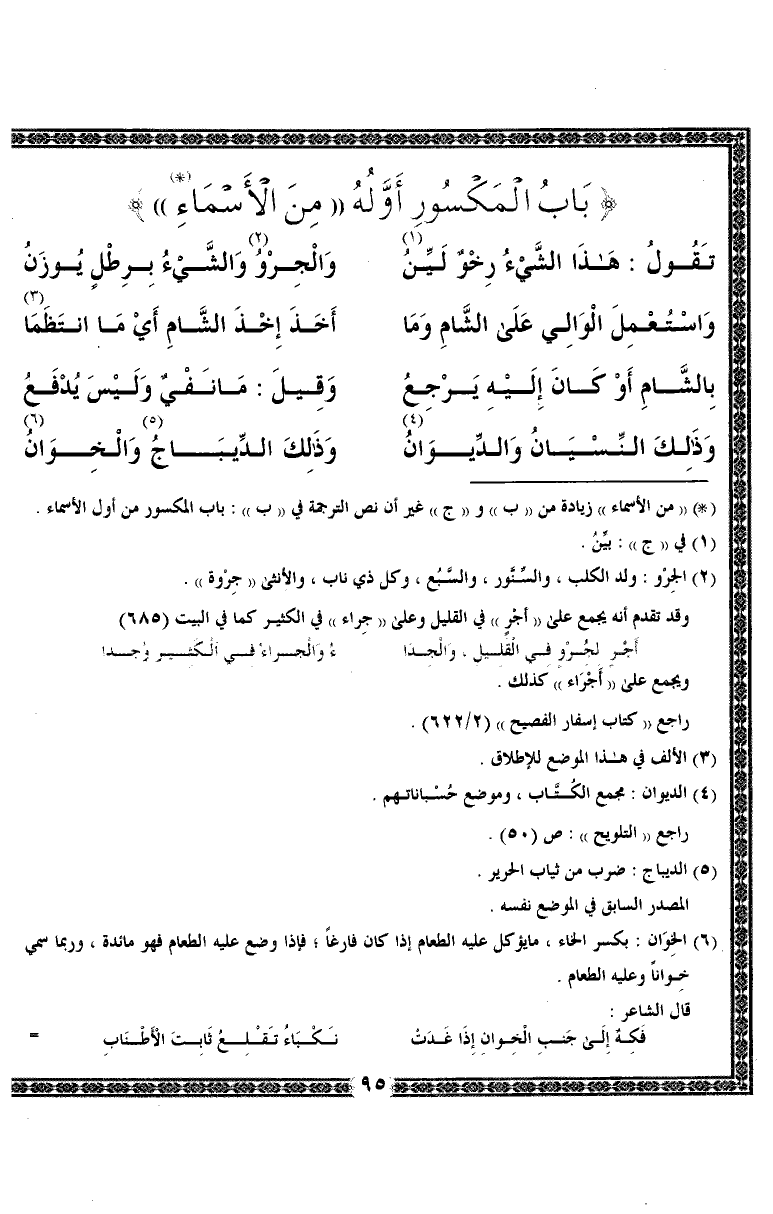 ﴿ بَابُ الْمَكْسُورِ أَوَّلُهُ (( مِنَ الْأَسْمَاءِ(*) )) ﴾
تَقُولُ : هَـٰذَا الشَّيْءُ رِخْوٌ لَيِّنُ(١) وَالْجِرْوُ(٢) وَالشَّيْءُ بِرِطْلٍ يُوزَنُ
وَاسْتُعْمِلَ الْوَالِي عَلَى الشَّامِ وَمَا أَخَذَ إِخْذَ الشَّامِ أَيْ مَا انتَظَمَا(٣)
بِالشَّامِ أَوْ كَانَ إِلَيْهِ يَرْجِعُ وَقِيلَ : مَانَفْيٌ وَلَيْسَ يُدْفَعُ
وَذَلِكَ النِّسْيَانُ وَالدِّيوَانُ(٤) وَذَلِكَ الدِّيبَاجُ(٥) وَالْخِوَانُ(٦)
(*) (( من الأسماء )) زيادة من (( ب )) و (( ج )) غير أن نص الترجمة في (( ب )) : باب المكسور من أول الأسماء .
(١) في (( ج )) : بَيِّنُ .
(٢) الجِرْو : ولد الكلب ، والسِّنَّور ، والسَّبُع ، وكل ذي ناب ، والأنثى (( جِرْوة )) .
وقد تقدم أنه يجمع على (( أجْرٍ )) في القليل وعلى (( جراء )) في الكثير كما في البيت (٦٨٥)
أَجْرٍ لجُرْوٍ فِي الْقَلِيلِ ، وَالْجِدَا ءُ وَالْجِرَاءُ فِي الْكَثِيرِ وُجِدا
ويجمع على (( أَجْرَاء )) كذلك .
راجع (( كتاب إسفار الفصيح )) (٦٢٢/٢) .
(٣) الألف في هـٰذا الموضع للإطلاق .
(٤) الديوان : مجمع الكُتَّاب ، وموضع حُسْباناتهم .
راجع (( التلويح )) : ص (٥٠) .
(٥) الديباج : ضرب من ثياب الحرير .
المصدر السابق في الموضع نفسه .
(٦) الخِوَان : بكسر الخاء ، مايؤكل عليه الطعام إذا كان فارغاً ؛ فإذا وضع عليه الطعام فهو مائدة ، وربما سمي
خواناً وعليه الطعام .
قال الشاعر :
فَكِهٌ إِلَى جَنبِ الْخِوانِ إِذَا غَدَتْ نَكْبَاءُ تَقْلِعُ ثَابِتَ الْأَطْنابِ =
٩٥